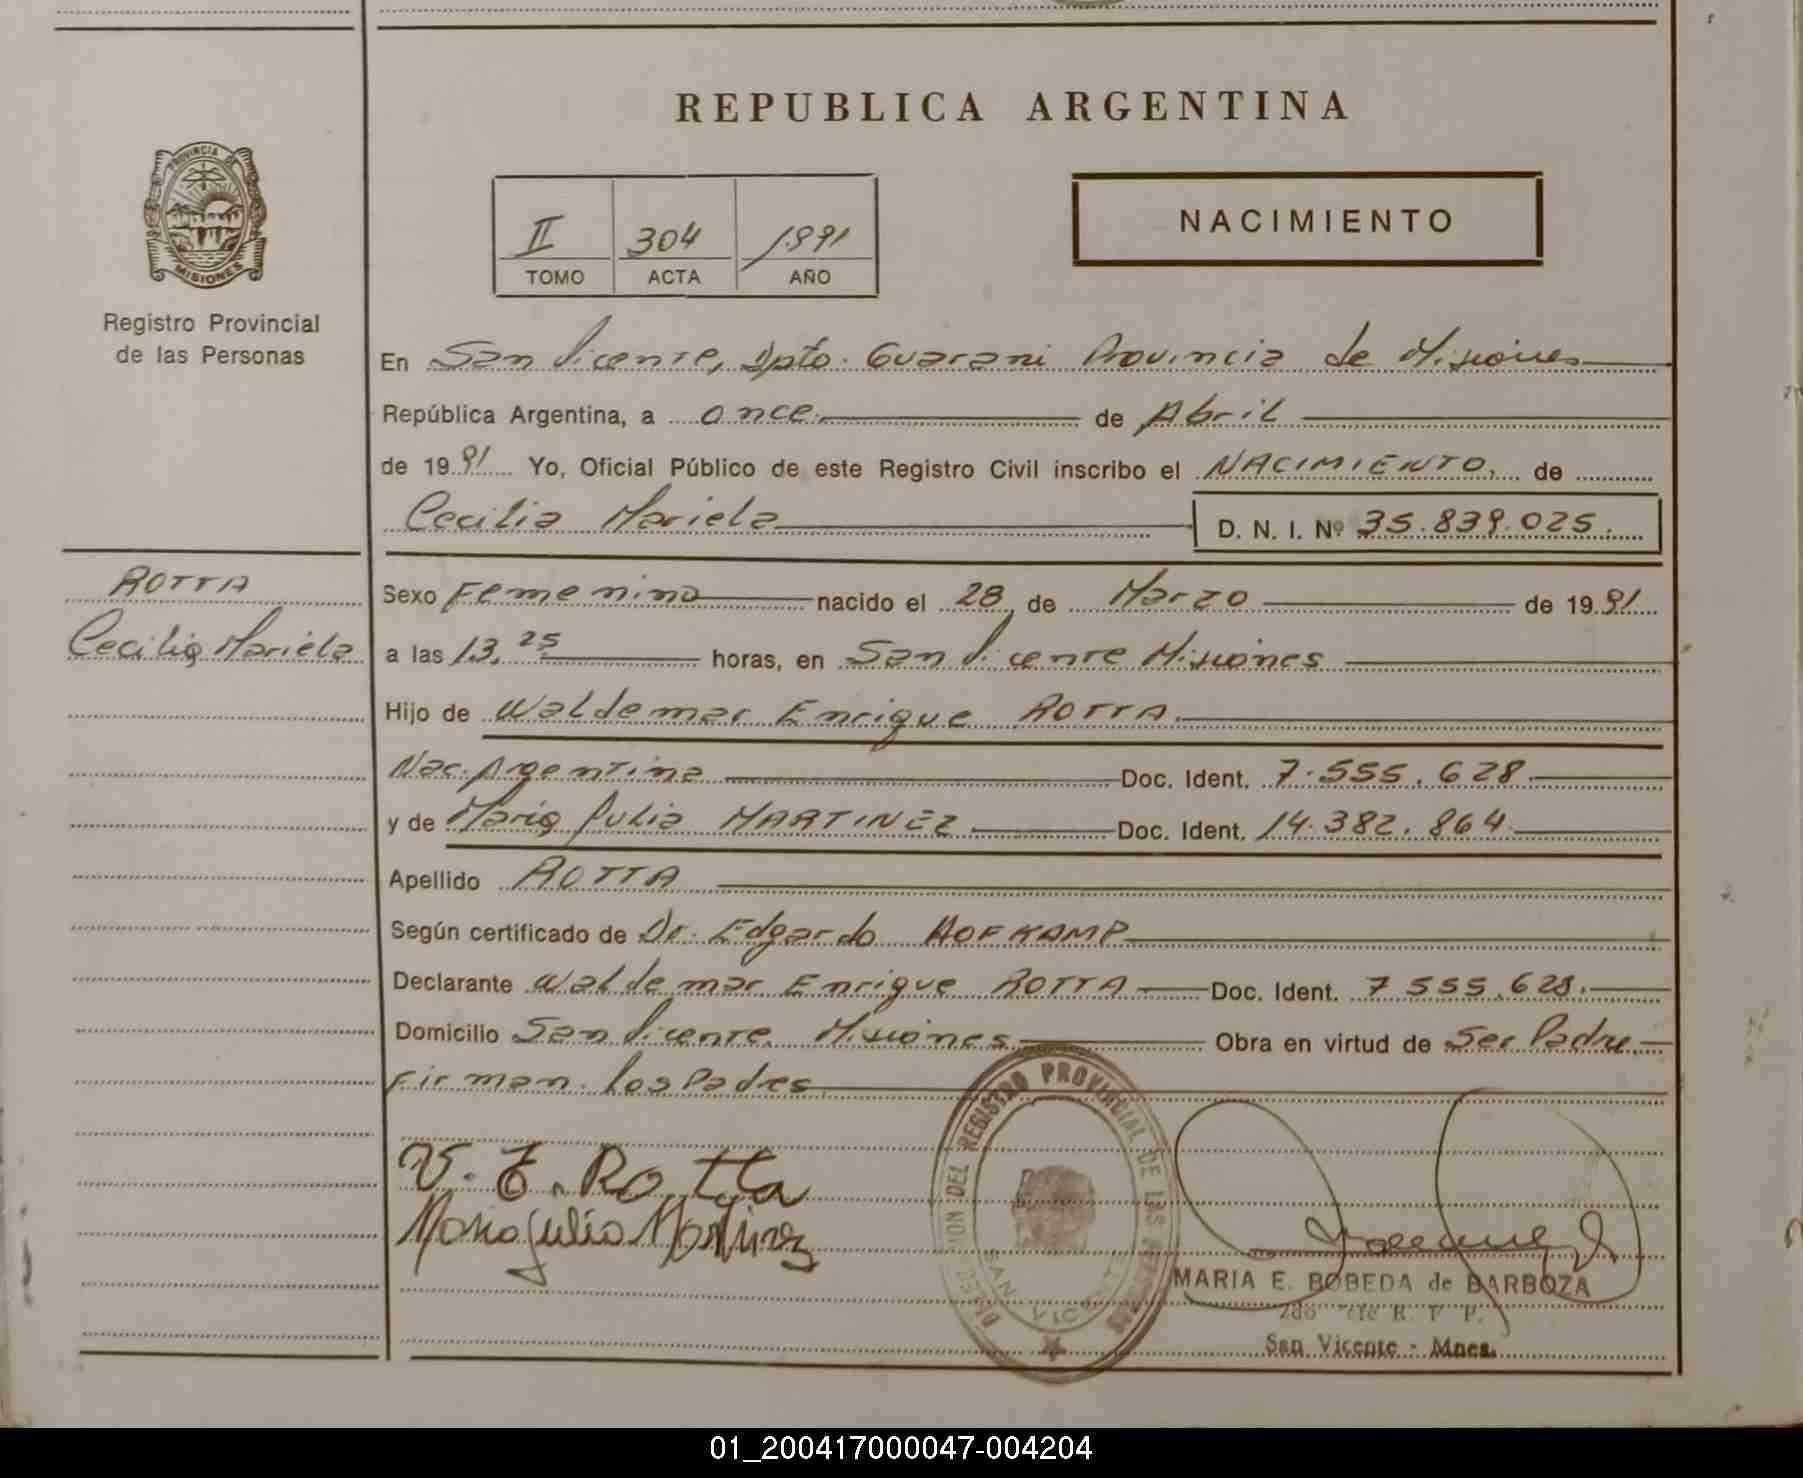 REPUBLICA ARGENTINA
PROVINCIA DE
MISIONES
Registro Provincial
de las Personas
II 304 1991
TOMO ACTA AÑO
NACIMIENTO
En San Vicente, Dpto. Guarani Provincia de Misiones
República Argentina, a once de Abril
de 1991 Yo, Oficial Público de este Registro Civil inscribo el NACIMIENTO, de
Cecilia Mariela D. N. I. Nº 35.839.025.
ROTTA
Cecilia Mariela
Sexo Femenino nacido el 28 de Marzo de 1991
a las 13,25 horas, en San Vicente Misiones
Hijo de Waldemar Enrique ROTTA.
Nac. Argentina Doc. Ident. 7.555.628.
y de Maria Julia MARTINEZ Doc. Ident. 14.382.864
Apellido ROTTA
Según certificado de Dr. Edgardo HOFKAMP
Declarante Waldemar Enrique ROTTA Doc. Ident. 7 555.628.
Domicilio San Vicente Misiones Obra en virtud de Ser Padre.
Firman los Padres
V. E. Rotta
Maria Julia Martinez
DEL REGISTRO PROVINCIAL DE LAS
SAN VICENTE
MARIA E. BOBEDA de BARBOZA
San Vicente - Mnes.
01_200417000047-004204